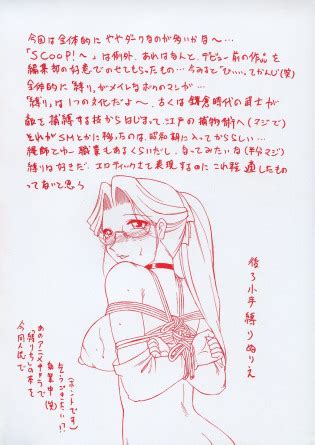 今回は全体的にややダークなのが多いかな〜…
「SCOOP!〜」は例外。あれはなんと、デビュー前の作品を
編集部の好意でのせてもらったもの…今みると“ひぃぃ„てかんじ(笑)
全体的に「縛り」がメイレなおりのマンガが…
「縛り」は1つの文化だよ〜、古くは鎌倉時代の武士が
敵を捕縛する技からはじまって、江戸の捕物術へ(マジで)
それがSMとかに移ったのは、昭和期に入ってからららしい…
縄師とゆー職業もあるくらいだし、なってみたいな(半分マジ)
縛りは好きだ。エロティックさを表現するのにこれ程適したもの
ってないと思う
後ろ小手縛りぬりえ
(ホントです)
あのアニメキャラで
「縛りもの」の本を
今同人誌で